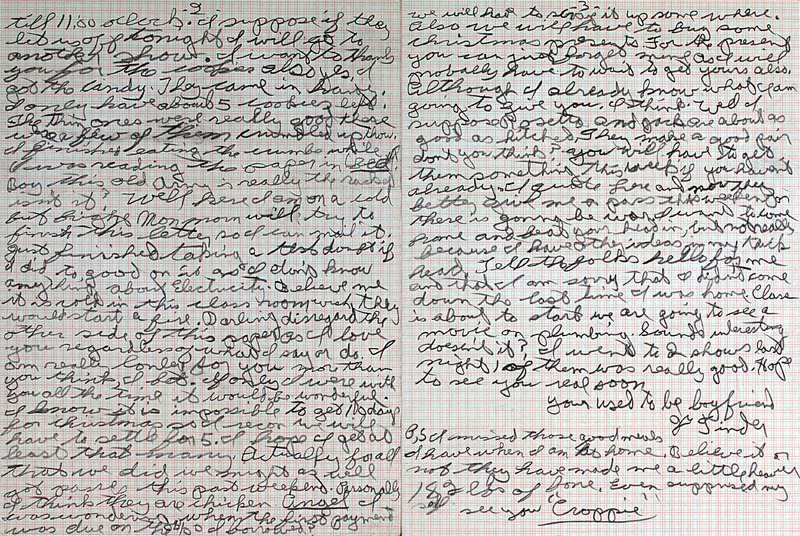 2
till 11:00 oclock. I suppose if they
let us off tonight I will go to
another show. I want to thank
you for the cookies also yes I
got the candy. They came in handy.
I only have about 5 cookies left.
The thin ones were really good there
were few of them crumbled up thou.
I finished eating the crumbs while
I was reading the paper in bed.
Boy this old Army is really the racket
isn't it? Well here I am on a cold
but bright Mon morn will try to
finish this letter so I can mail it.
Just finished taking a test doubt if
I did to good on it as I don't know
any thing about Electricity. Believe me
it is cold in this class room wish they
would start a fire. Darling disregard the
other side of this paper as I love
you regardless of what I say or do. I
am really lonely for you more than
you think, I bet. If only I were with
you all the time it would be wonderful.
I know it is impossible to get 10 days
for Christmas so I recon we will
have to settle for 5. I hope I get at
least that many. Actually for all
that we did we might as well
got passes this past weekend. Personally
I think they are chicken. Angel I
was wondering when the first payment
was due on the I borrowed?
3
we will have to store it up some where.
Also we will have to buy some
christmas presents. For the present
you can just forget mine as I will
probally have to wait to get yours also.
Although I already know what I am
going to give you. I think. Well I
suppose and are about as
good as hitched. They make a good pair
dont you think? You will have to get
them something this week if you havent
already. I quote here and now they
better give me a pass this weekend or
there is gonna be war. I want to come
home and beat your head in, but not really
because I have other ideas on my thick
head. Tell the folks hello for me
and that I am sorry that I didnt come
down the last time I was home. Class
is about to start we are going to see a
movie on plumbing. Sounds interesting
doesn't it? I went to 2 shows last
night 1 of them was really good. Hope
to see you real soon
Your used to be boyfriend
Jr Tinder
P.S. I missed those good meals
I have when I am at home. Believe it or
not they have made me a little heavier
182 lbs of bone. Even supprised my
self see you "Croppie"